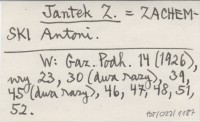 Jantek Z. = ZACHEM-
SKI Antoni.
W: Gaz. Podh. 14 (1926),
nry 23, 30 (dwa razy), 39,
45 (dwa razy), 46, 47, 48, 51,
52.